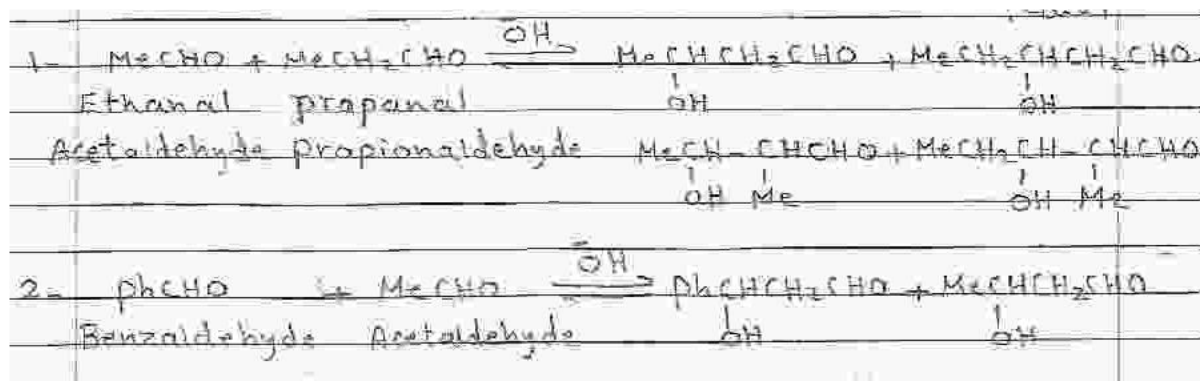 OH
1- MeCHO + MeCH2CHO ⇌ MeCHCH2CHO + MeCH2CHCH2CHO
Ethanal propanal OH OH
Acetaldehyde propionaldehyde MeCH-CHCHO + MeCH2CH-CHCHO
OH Me OH Me
OH
2- phCHO + MeCHO ⇌ phCHCH2CHO + MeCHCH2CHO
Benzaldehyde Acetaldehyde OH OH